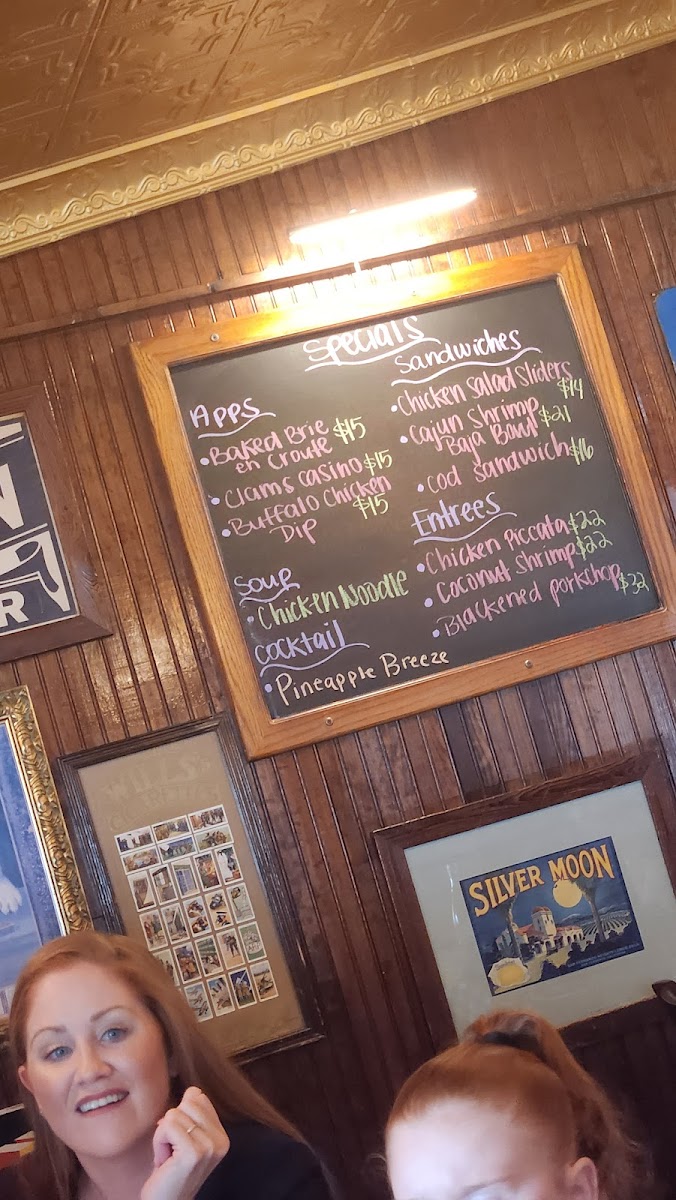 Specials
Apps
• Baked Brie $15
en Croute
• Clams Casino $15
• Buffalo Chicken $15
Dip
Soup
• Chicken Noodle
Cocktail
• Pineapple Breeze
Sandwiches
• Chicken Salad Sliders $14
• Cajun Shrimp $21
Baja Bowl
• Cod Sandwich $16
Entrees
• Chicken Piccata $22
• Coconut Shrimp $22
• Blackened Porkchop $32
N
R
WILLS'S
SILVER MOON